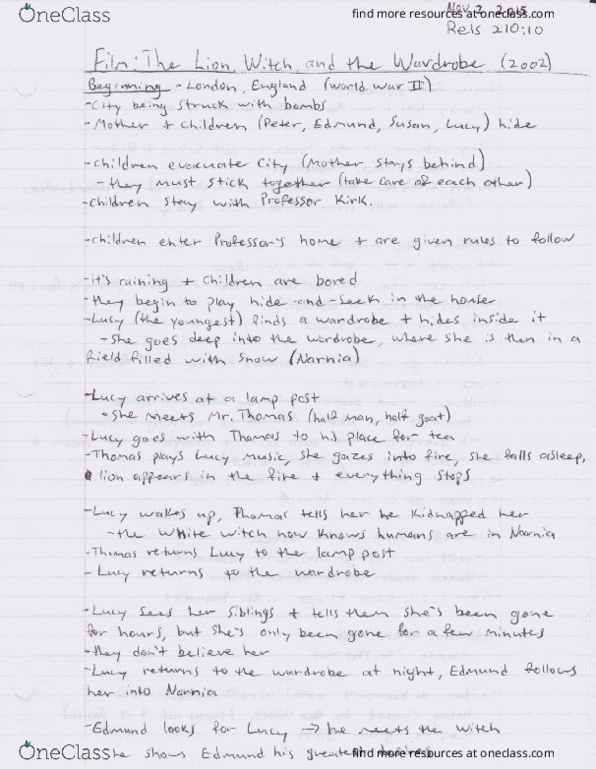 OneClass
Nov 2 2015
find more resources at oneclass.com
Rels 210:10
Film: The Lion, Witch, and the Wardrobe (2002)
Beginning - London, England (World War II)
- City being struck with bombs
- Mother + Children (Peter, Edmund, Susan, Lucy) hide
- children evacuate city (Mother stays behind)
- they must stick together (take care of each other)
- children stay with Professor Kirk.
- children enter Professor's home + are given rules to follow
- it's raining + children are bored
- they begin to play hide-and-seek in the house
- Lucy (the youngest) finds a wardrobe + hides inside it
- She goes deep into the wardrobe, where she is then in a
field filled with snow (Narnia)
- Lucy arrives at a lamp post
• She meets Mr. Thomas (half man, half goat)
- Lucy goes with Thomas to his place for tea
- Thomas plays Lucy music, she gazes into fire, she falls asleep,
lion appears in the fire + everything stops
- Lucy wakes up, Thomas tells her he kidnapped her
- the White witch now knows humans are in Narnia
- Thomas returns Lucy to the lamp post
- Lucy returns to the wardrobe
- Lucy sees her siblings + tells them she's been gone
for hours, but she's only been gone for a few minutes
- they don't believe her
- Lucy returns to the wardrobe at night, Edmund follows
her into Narnia
- Edmund looks for Lucy → he meets the witch
OneClass
she shows Edmund his greatest
find more resources at oneclass.com